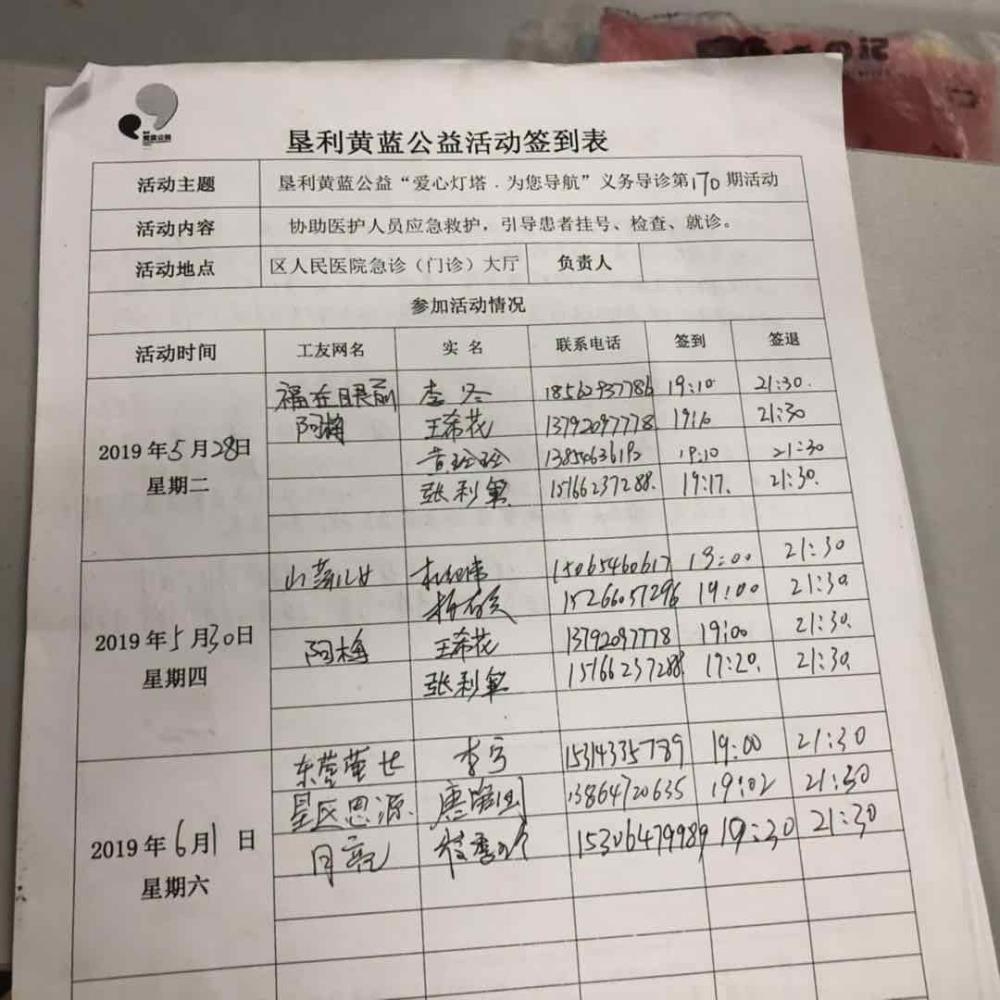 垦利黄蓝公益活动签到表
活动主题 垦利黄蓝公益“爱心灯塔.为您导航”义务导诊第170期活动
活动内容 协助医护人员应急救护，引导患者挂号、检查、就诊。
活动地点 区人民医院急诊（门诊）大厅 负责人
参加活动情况
活动时间 工友网名 实 名 联系电话 签到 签退
2019年5月28日
星期二
福在眼前 李冬 18562937786 19:10 21:30.
阿梅 王希花 13792097778 19:16 21:30
黄玲玲 19:10 21:30
张利 15166237288. 19:17. 21:30.
2019年5月30日
星期四
15065460617 19:00 21:30
杨 15266057296 19:00 21:30
阿梅 王希花 13792097778 19:00 21:30.
张利 15166237288 19:20. 21:30.
2019年6月1日
星期六
李宁 15314335789 19:00 21:30
垦区思源 唐 13864720635 19:02 21:30
月亮 15306479989 19:30 21:30